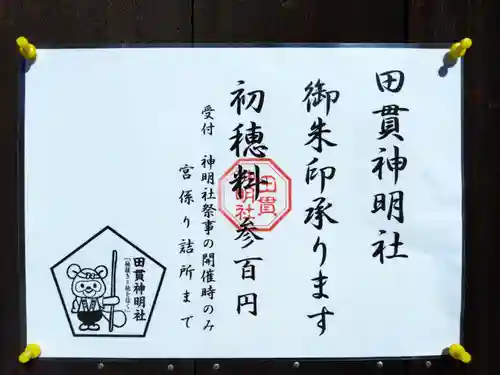 田貫神明社
御朱印承ります
初穂料参百円
受付 神明社祭事の開催時のみ
宮係り詰所まで
田貫
神明社
田貫神明社